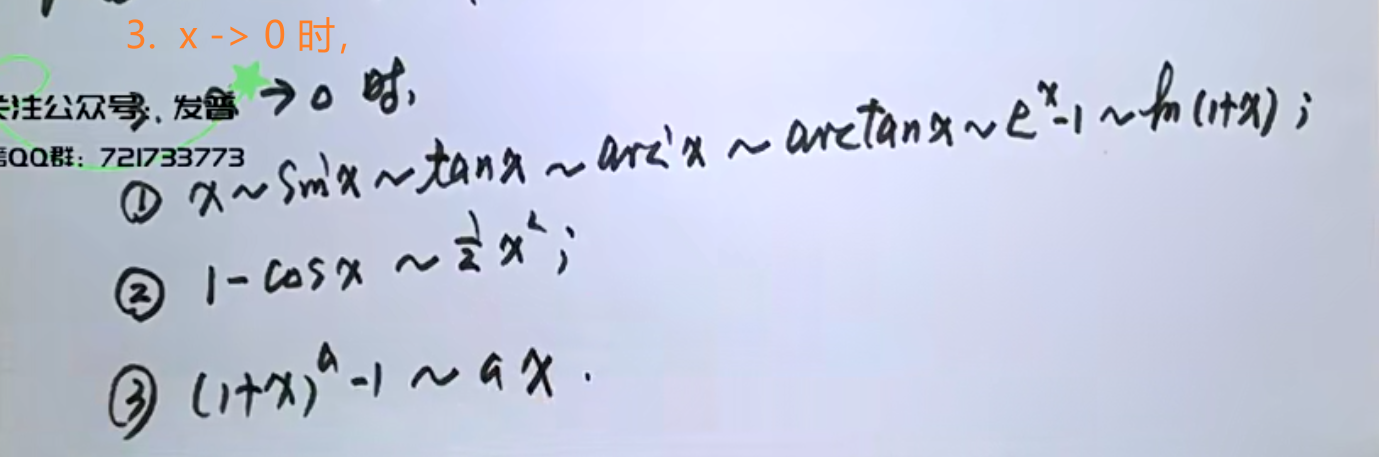 3. x -> 0 时,
3. → 0 时,
关注公众号:, 发普
QQ群: 721733773
① x ~ sin x ~ tan x ~ arc x ~ arctan x ~ e^x - 1 ~ ln (1+x) ;
② 1 - cos x ~ 1/2 x² ;
③ (1+x)^a - 1 ~ a x .